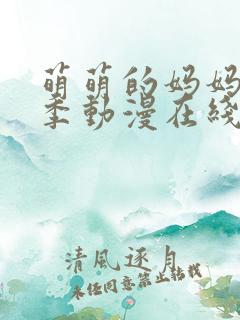 萌萌的妈妈
季動漫在綫
清風逐月
未经同意禁止转载